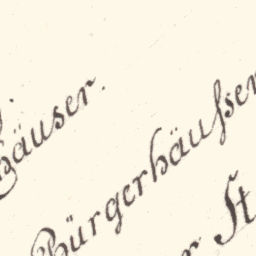 häuser.
Bürgerhäusser
r St